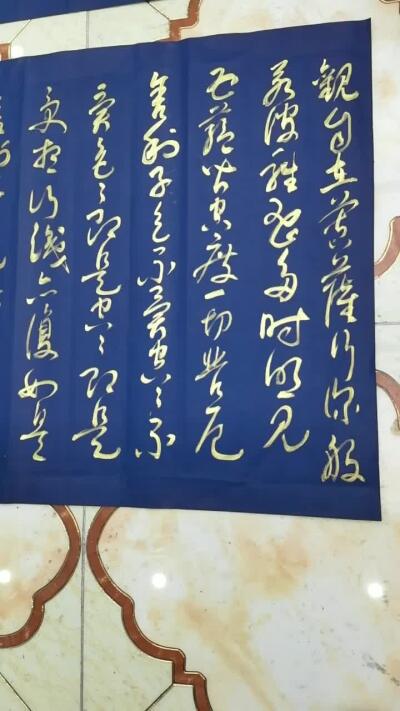 觀自在菩薩行深般
若波羅蜜多時照見
五蘊皆空度一切苦厄
舍利子色不異空々不
異色々即是空々即是
受想行識亦復如是